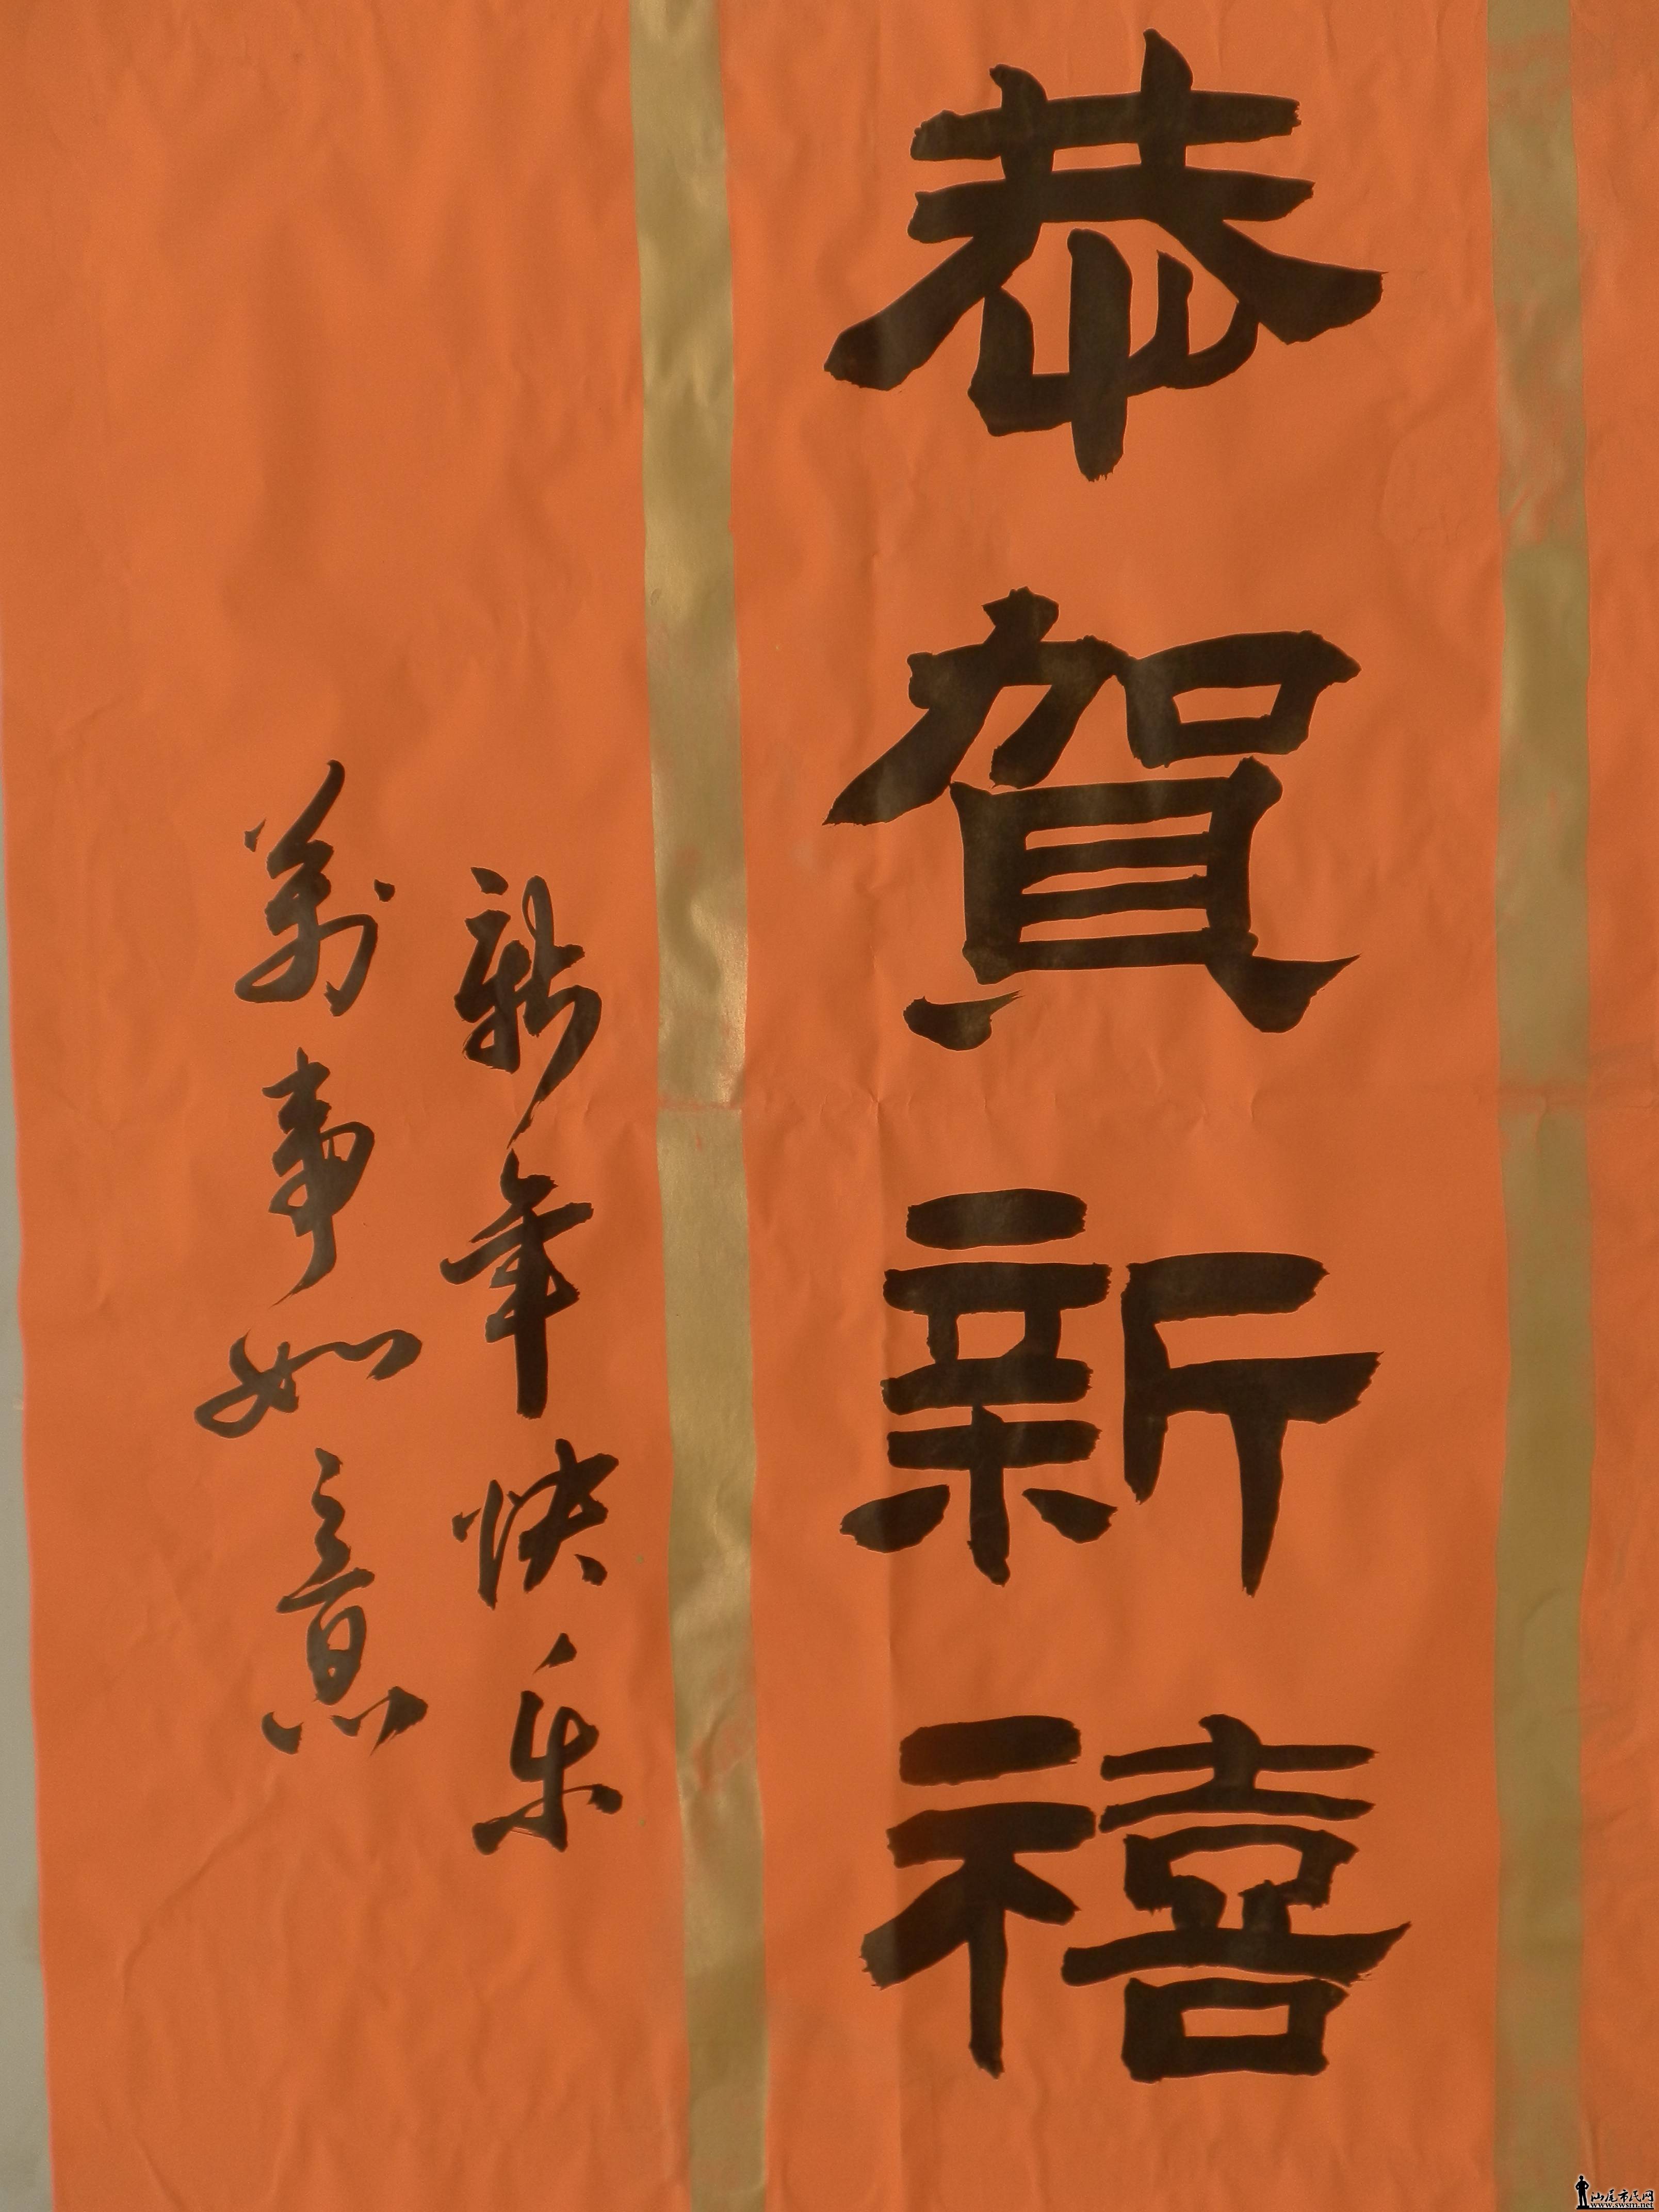 恭賀新禧
新年快乐
萬事如意
汕尾市民网
www.swsm.net